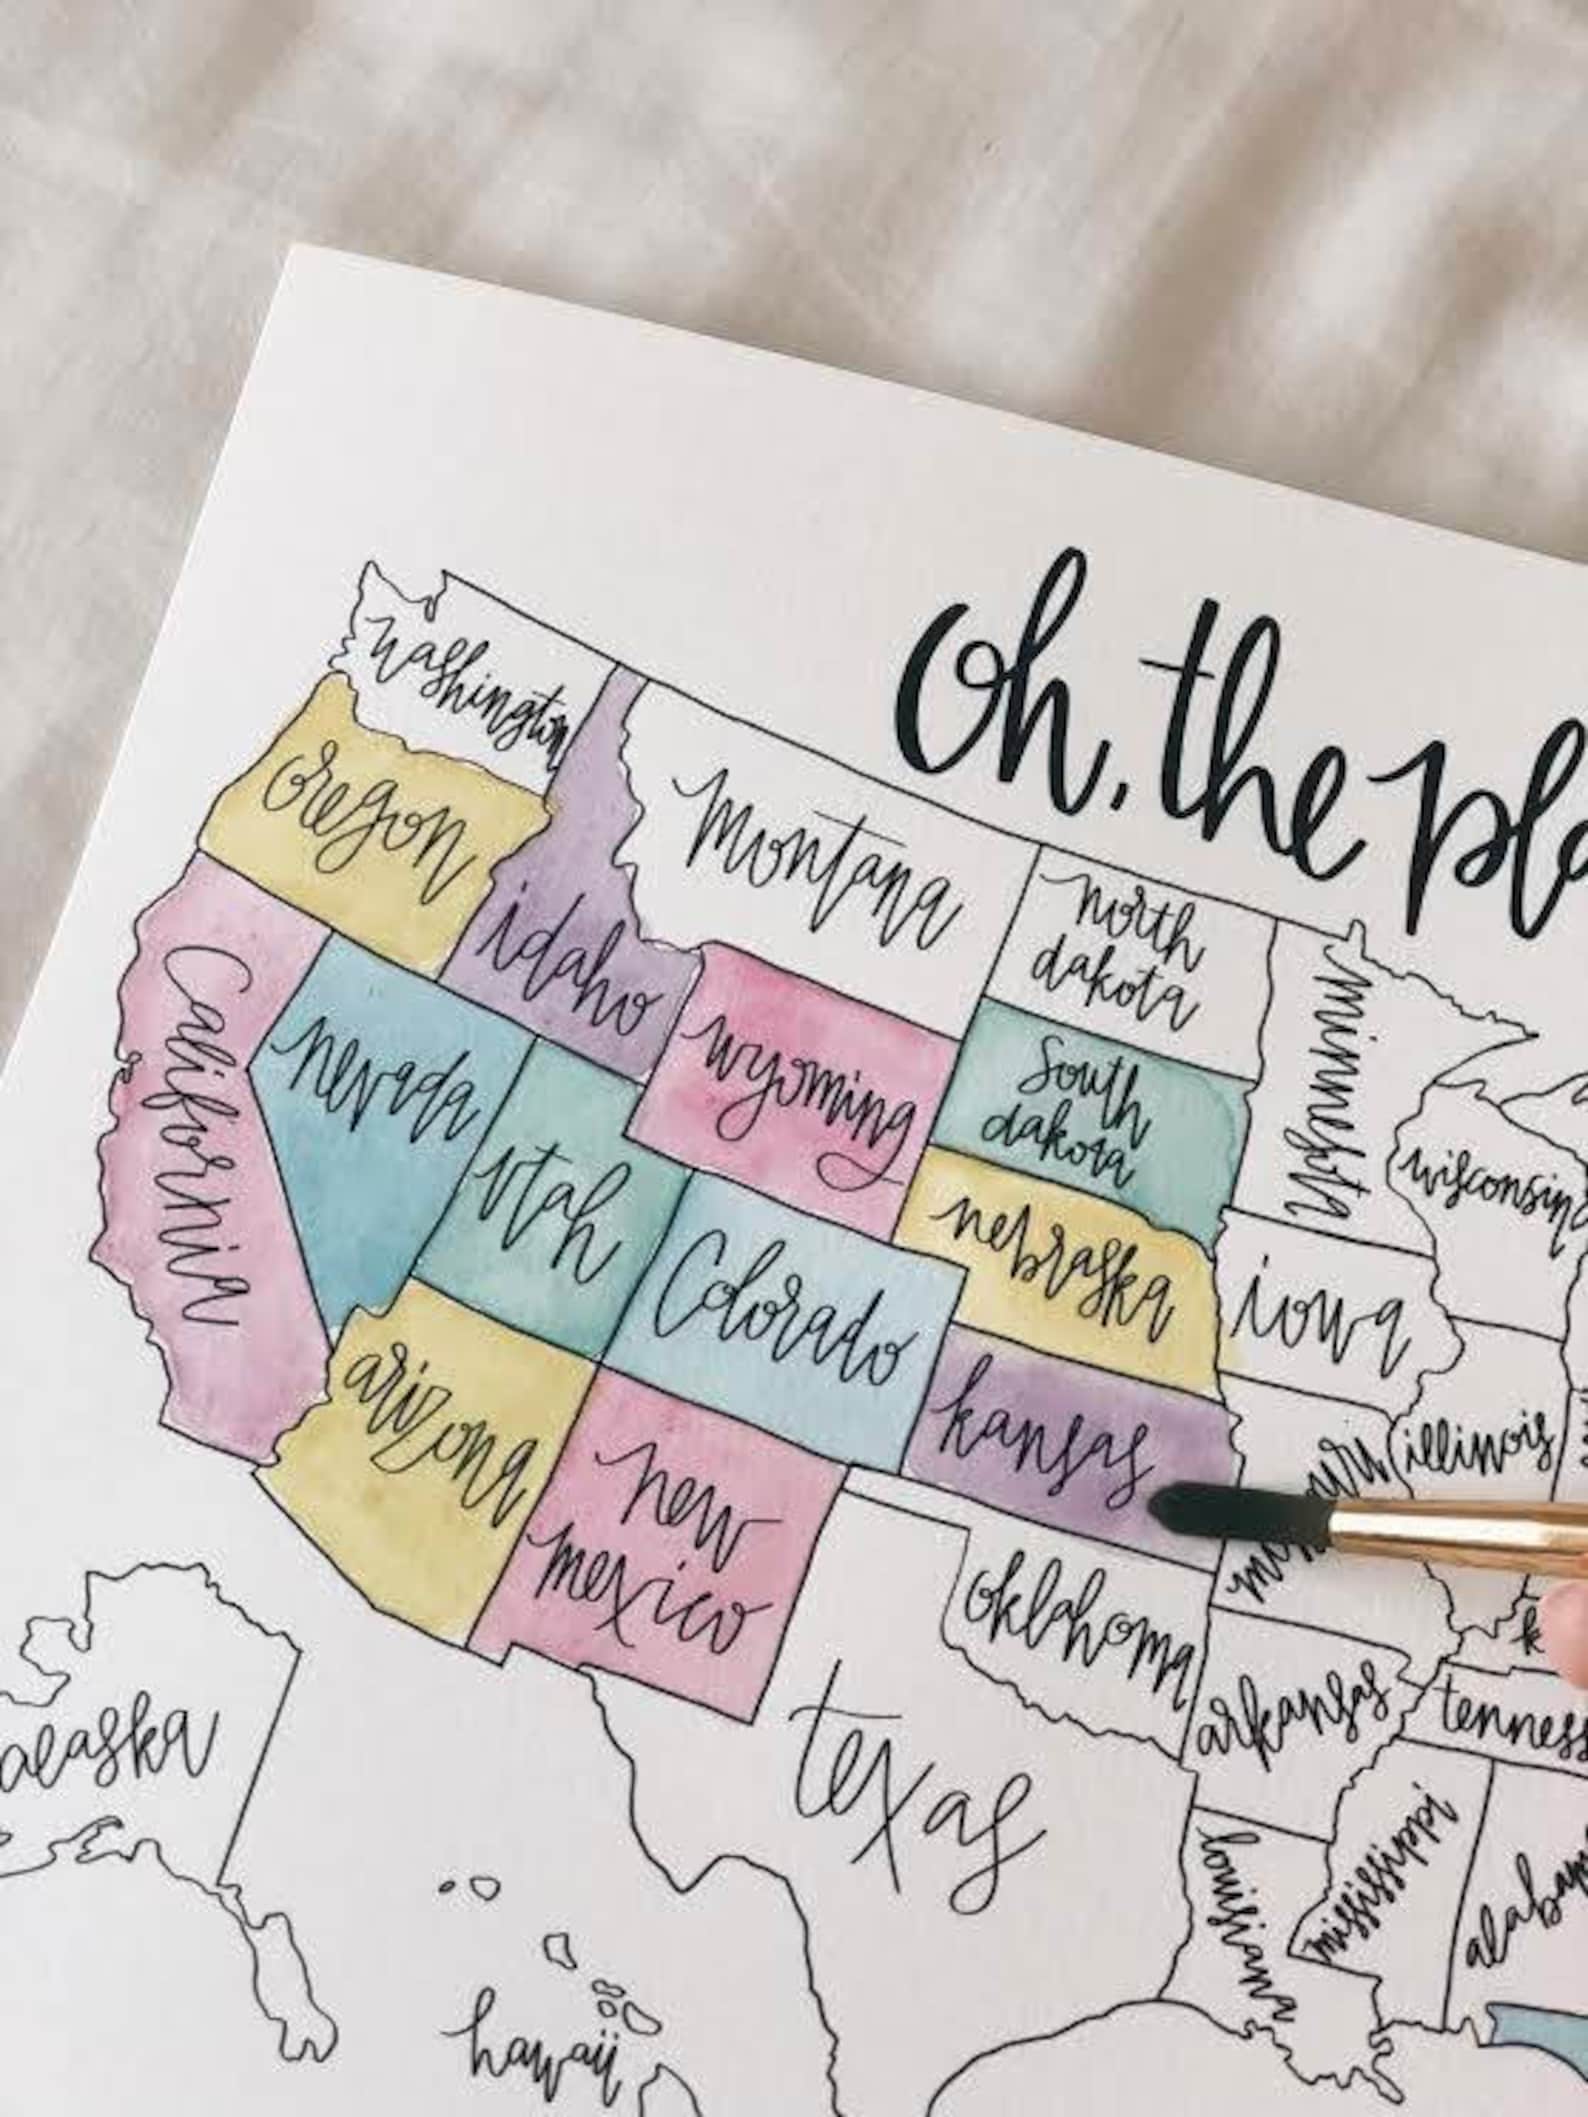 Oh, the pla
washington
oregon
idaho
montana
north
dakota
minnesota
wisconsin
California
nevada
utah
wyoming
South
dakota
nebraska
iowa
Colorado
kansas
illinois
arizona
new
mexico
oklahoma
arkansas
tenness
texas
louisiana
mississippi
alabam
alaska
hawaii